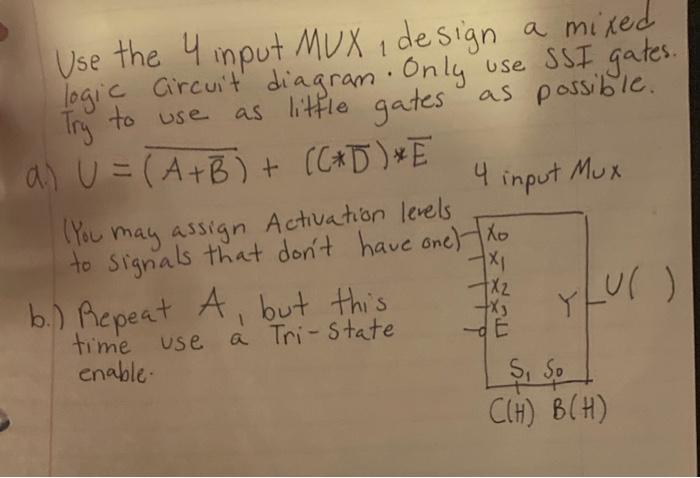 Use the 4 input MUX, design a mixed
logic circuit diagram. Only use SSI gates.
Try to use as little gates as possible.
a.) U = \overline{(A+\overline{B})} + (C*\overline{D})*\overline{E}
4 input Mux
(You may assign Activation levels
to signals that don't have one)
X0
X1
X2
X3
E
Y
U( )
S1 S0
C(H) B(H)
b.) Repeat A, but this
time use a Tri-State
enable.